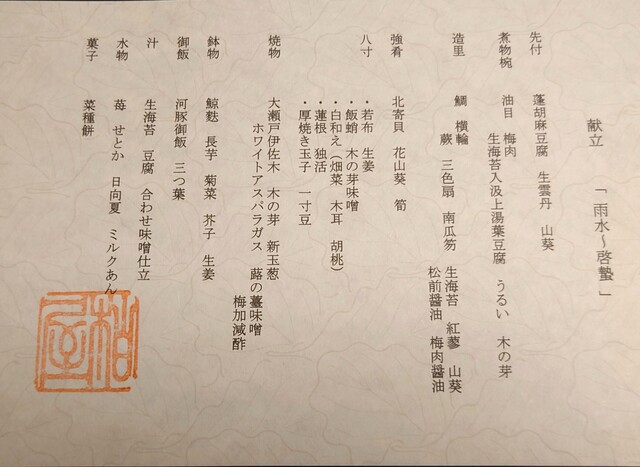 献立 「雨水～啓蟄」
先付 蓬胡麻豆腐 生雲丹 山葵
煮物椀 油目 梅肉 うるい 木の芽
生海苔入汲上湯葉豆腐
造里 鯛 横輪 蕨 三色扇 南瓜笏 生海苔 紅蓼 山葵
松前醤油 梅肉醤油
強肴 北寄貝 花山葵 筍
八寸 ・若布 生姜
・飯蛸 木の芽味噌
・白和え(畑菜 木耳 胡桃)
・蓮根 独活
・厚焼き玉子 一寸豆
焼物 大瀬戸伊佐木 木の芽 新玉葱
ホワイトアスパラガス 蕗の薹味噌
梅加減酢
鉢物 鯨麩 長芋 菊菜 芥子 生姜
御飯 河豚御飯 三つ葉
汁 生海苔 豆腐 合わせ味噌仕立
水物 苺 せとか 日向夏 ミルクあん
菓子 菜種餅
柏屋